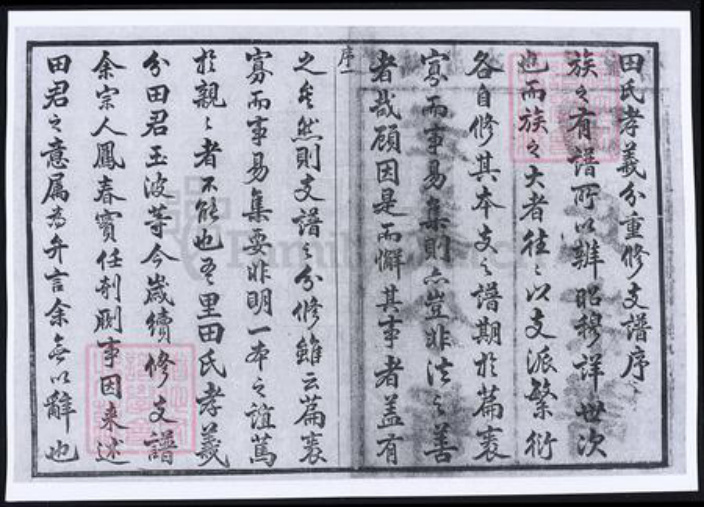 田氏孝義分重修支譜序
族之有譜所以辨昭穆詳世次
也而族之大者往〻以支派繁衍
各自修其本支之譜期於篇袠
寡而事易集則亦豈非法之善
者哉顧因是而懈其事者蓋有
序一
之矣然則支譜之分修雖云篇袠
寡而事易集要非明一本之誼篤
於親〻者不能也吾里田氏孝義
分田君玉波等今歲續修支譜
余宗人鳳春實任剞劂事因來述
田君之意屬為弁言余無以辭也